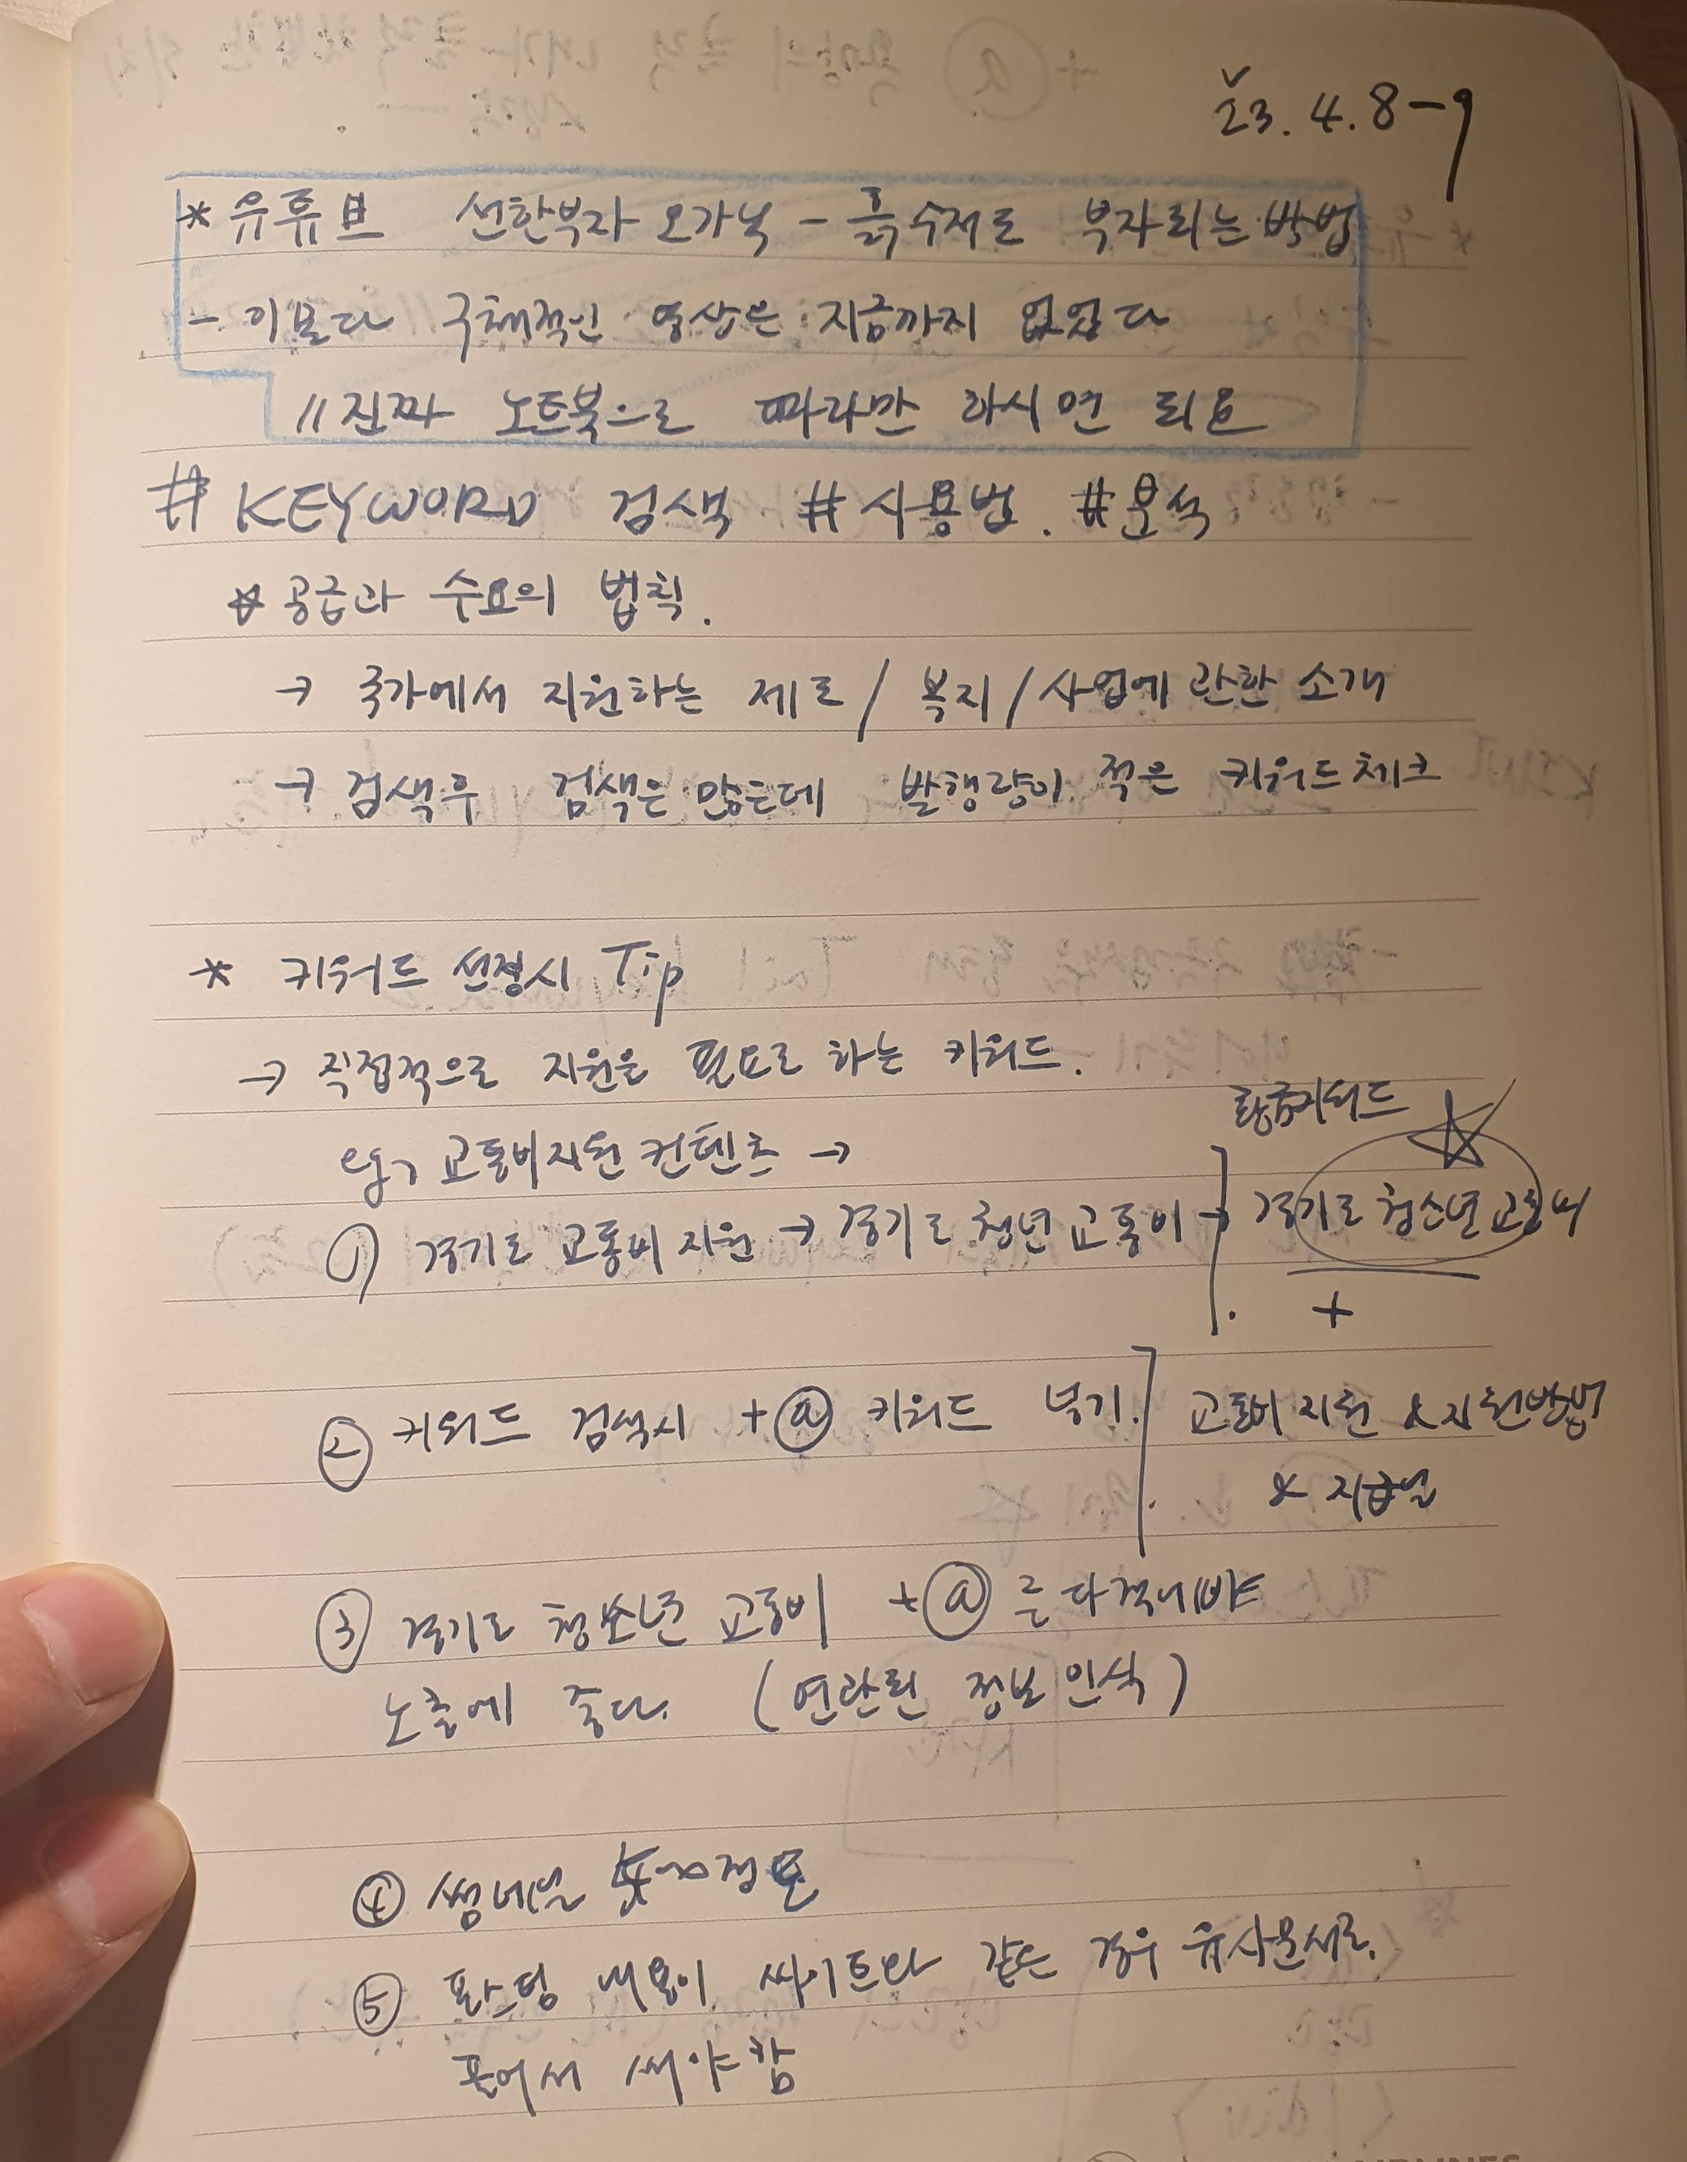 23. 4. 8-9
* 유튜브 선한부자 오가닉 - 흙수저로 부자되는 방법
- 이보다 구체적인 영상은 지금까지 없었다
// 진짜 노트북으로 따라만 하시면 되요
# KEYWORD 검색 # 사용법. #분석
* 공급과 수요의 법칙.
→ 국가에서 지원하는 제도 / 복지 / 사업에 관한 소개
→ 검색후 검색은 많은데 발행량이 적은 키워드 체크
* 키워드 선정시 Tip
→ 직접적으로 지원을 필요로 하는 키워드.
eg, 교통비지원 컨텐츠 →
황금키워드
① 경기도 교통비 지원 → 경기도 청년 교통비 → 경기도 청소년 교통비
+
② 키워드 검색시 + ⓐ 키워드 넣기. 교통비 지원 & 지원방법
& 지급일
③ 경기도 청소년 교통비 + ⓐ 를 다 적어봐야
노출에 좋다. (연관된 정보 인식)
④ 썸네일
⑤ 포스팅 내용이 싸이트와 같은 경우 유사문서로.
풀어서 써야함